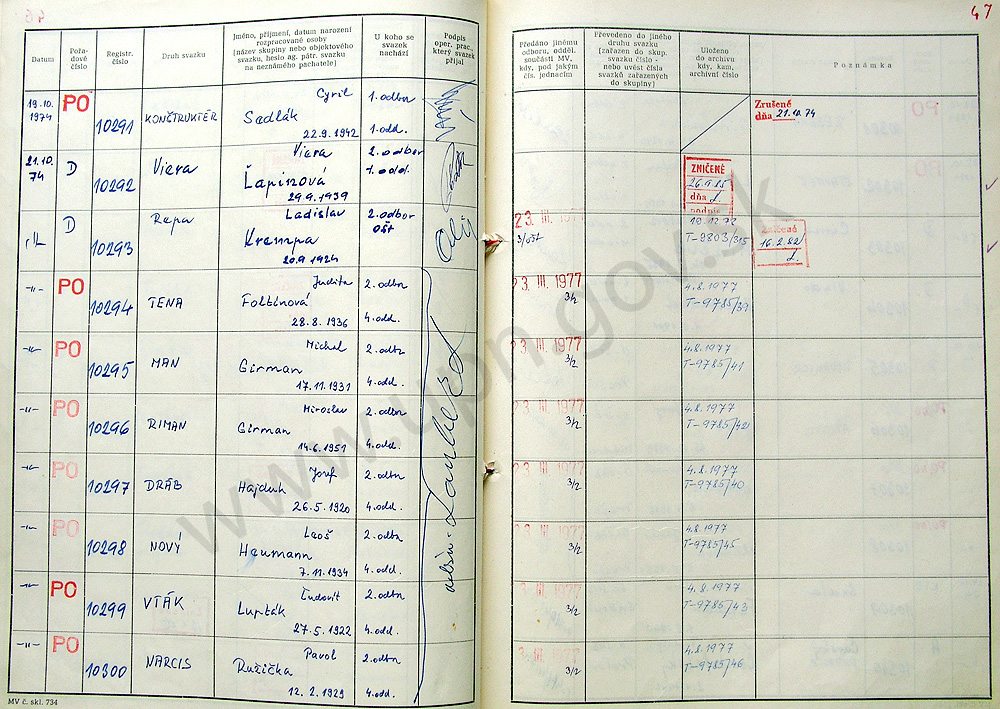 46
47
Datum
Pořadové číslo
Registr. číslo
Druh svazku
Jméno, příjmení, datum narození rozpracované osoby [název skupiny nebo objektového svazku, heslo ag. pátr. svazku na neznámého pachatele]
U koho se svazek nachází
Podpis oper. prac., který svazek přijal
Předáno jinému odboru, odděl. součásti MV, kdy, pod jakým čís. jednacím
Převedeno do jiného druhu svazku [zařazen do skup. svazku číslo - nebo uvést čísla svazků zařazených do skupiny]
Uloženo do archivu kdy, kam, archivní číslo
Poznámka
19.10. 1974 PO 10291 KONŠTRUKTÉR Cyril Sedlák 22.9.1942 1. odbor 1. odd.
Zrušené dňa 21.10.74
21.10. 74 D 10292 Viera Viera Lapinová 29.9.1939 2. odbor 1. odd.
ZNIČENÉ
dňa
podpis
D 10293 Repa Ladislav Krempa 20.9.1924 2. odbor OŠt
23. III. 1977 3/OŠt
T-9803/315
Zničené 16.2.82
-"- PO 10294 TENA Judita Foltínová 28.8.1936 2. odbor 4. odd.
23. III. 1977 3/2 4.8.1977 T-9785/39
-"- PO 10295 MAN Michal Girman 17.11.1931 2. odbor 4. odd.
23. III. 1977 3/2 4.8.1977 T-9785/41
-"- PO 10296 RIMAN Miroslav Girman 14.6.1951 2. odbor 4. odd.
23. III. 1977 3/2 4.8.1977 T-9785/42
-"- PO 10297 DRÁB Jozef Hajduk 26.5.1920 2. odbor 4. odd.
23. III. 1977 3/2 4.8.1977 T-9785/40
-"- PO 10298 NOVÝ Laoš Haumann 7.11.1934 2. odbor 4. odd.
23. III. 1977 3/2 4.8.1977 T-9785/45
-"- PO 10299 VTÁK Ľudovít Lupták 27.5.1922 2. odbor 4. odd.
23. III. 1977 3/2 4.8.1977 T-9785/43
-"- PO 10300 NARCIS Pavol Ružička 12.2.1929 2. odbor 4. odd.
23. III. 1977 3/2 4.8.1977 T-9785/46
MV č. skl. 734
www.upn.gov.sk